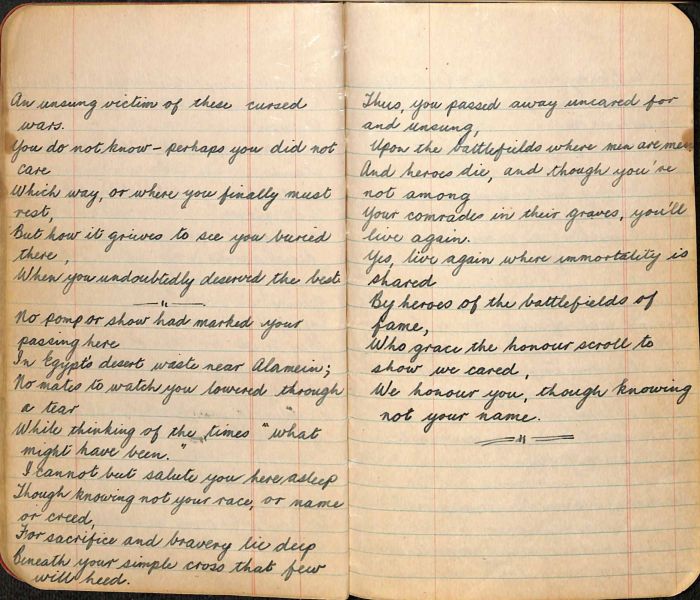 An unsung victim of these cursed
wars.
You do not know - perhaps you did not
care
Which way, or where you finally must
rest,
But how it grieves to see you buried
there,
When you undoubtedly deserved the best.
No pomp or show had marked your
passing here
In Egypt's desert waste near Alamein;
No mates to watch you lowered through
a tear
While thinking of the times "what
might have been."
I cannot but salute you here asleep
Though knowing not your race, or name
or creed,
For sacrifice and bravery lie deep
Beneath your simple cross that few
will heed.
Thus, you passed away uncared for
and unsung,
Upon the battlefields where men are men
And heroes die, and though you've
not among
Your comrades in their graves, you'll
live again.
Yes, live again where immortality is
shared
By heroes of the battlefields of
fame,
Who grace the honour scroll to
show we cared,
We honour you, though knowing
not your name.